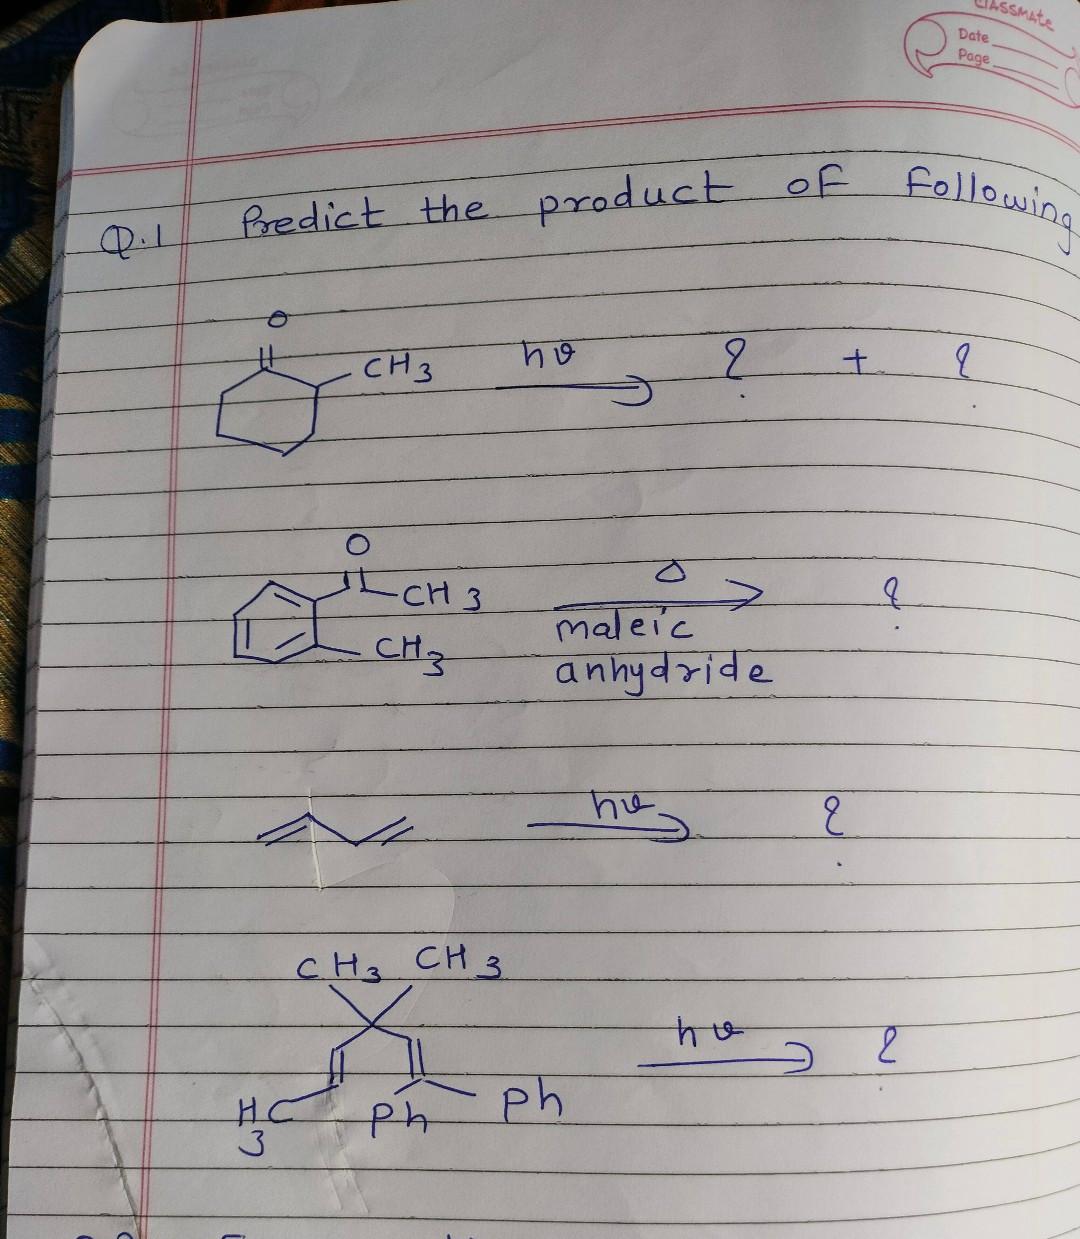 classmate
Date
Page
Q.1 Predict the product of following
O
CH3 hν ? + ?
O
CH3 Δ ?
CH3 maleic
anhydride
hν ?
CH3 CH3
hν ?
H3C Ph Ph